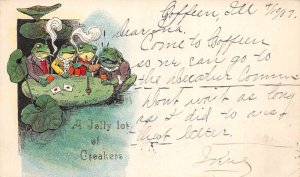 Coffeen, Ill 7/1907
Dear Ina,
Come to Coffeen
so we can go to
the
Wont wait as long
as I did to
last letter.
Irene
A Jolly lot
of
Croakers